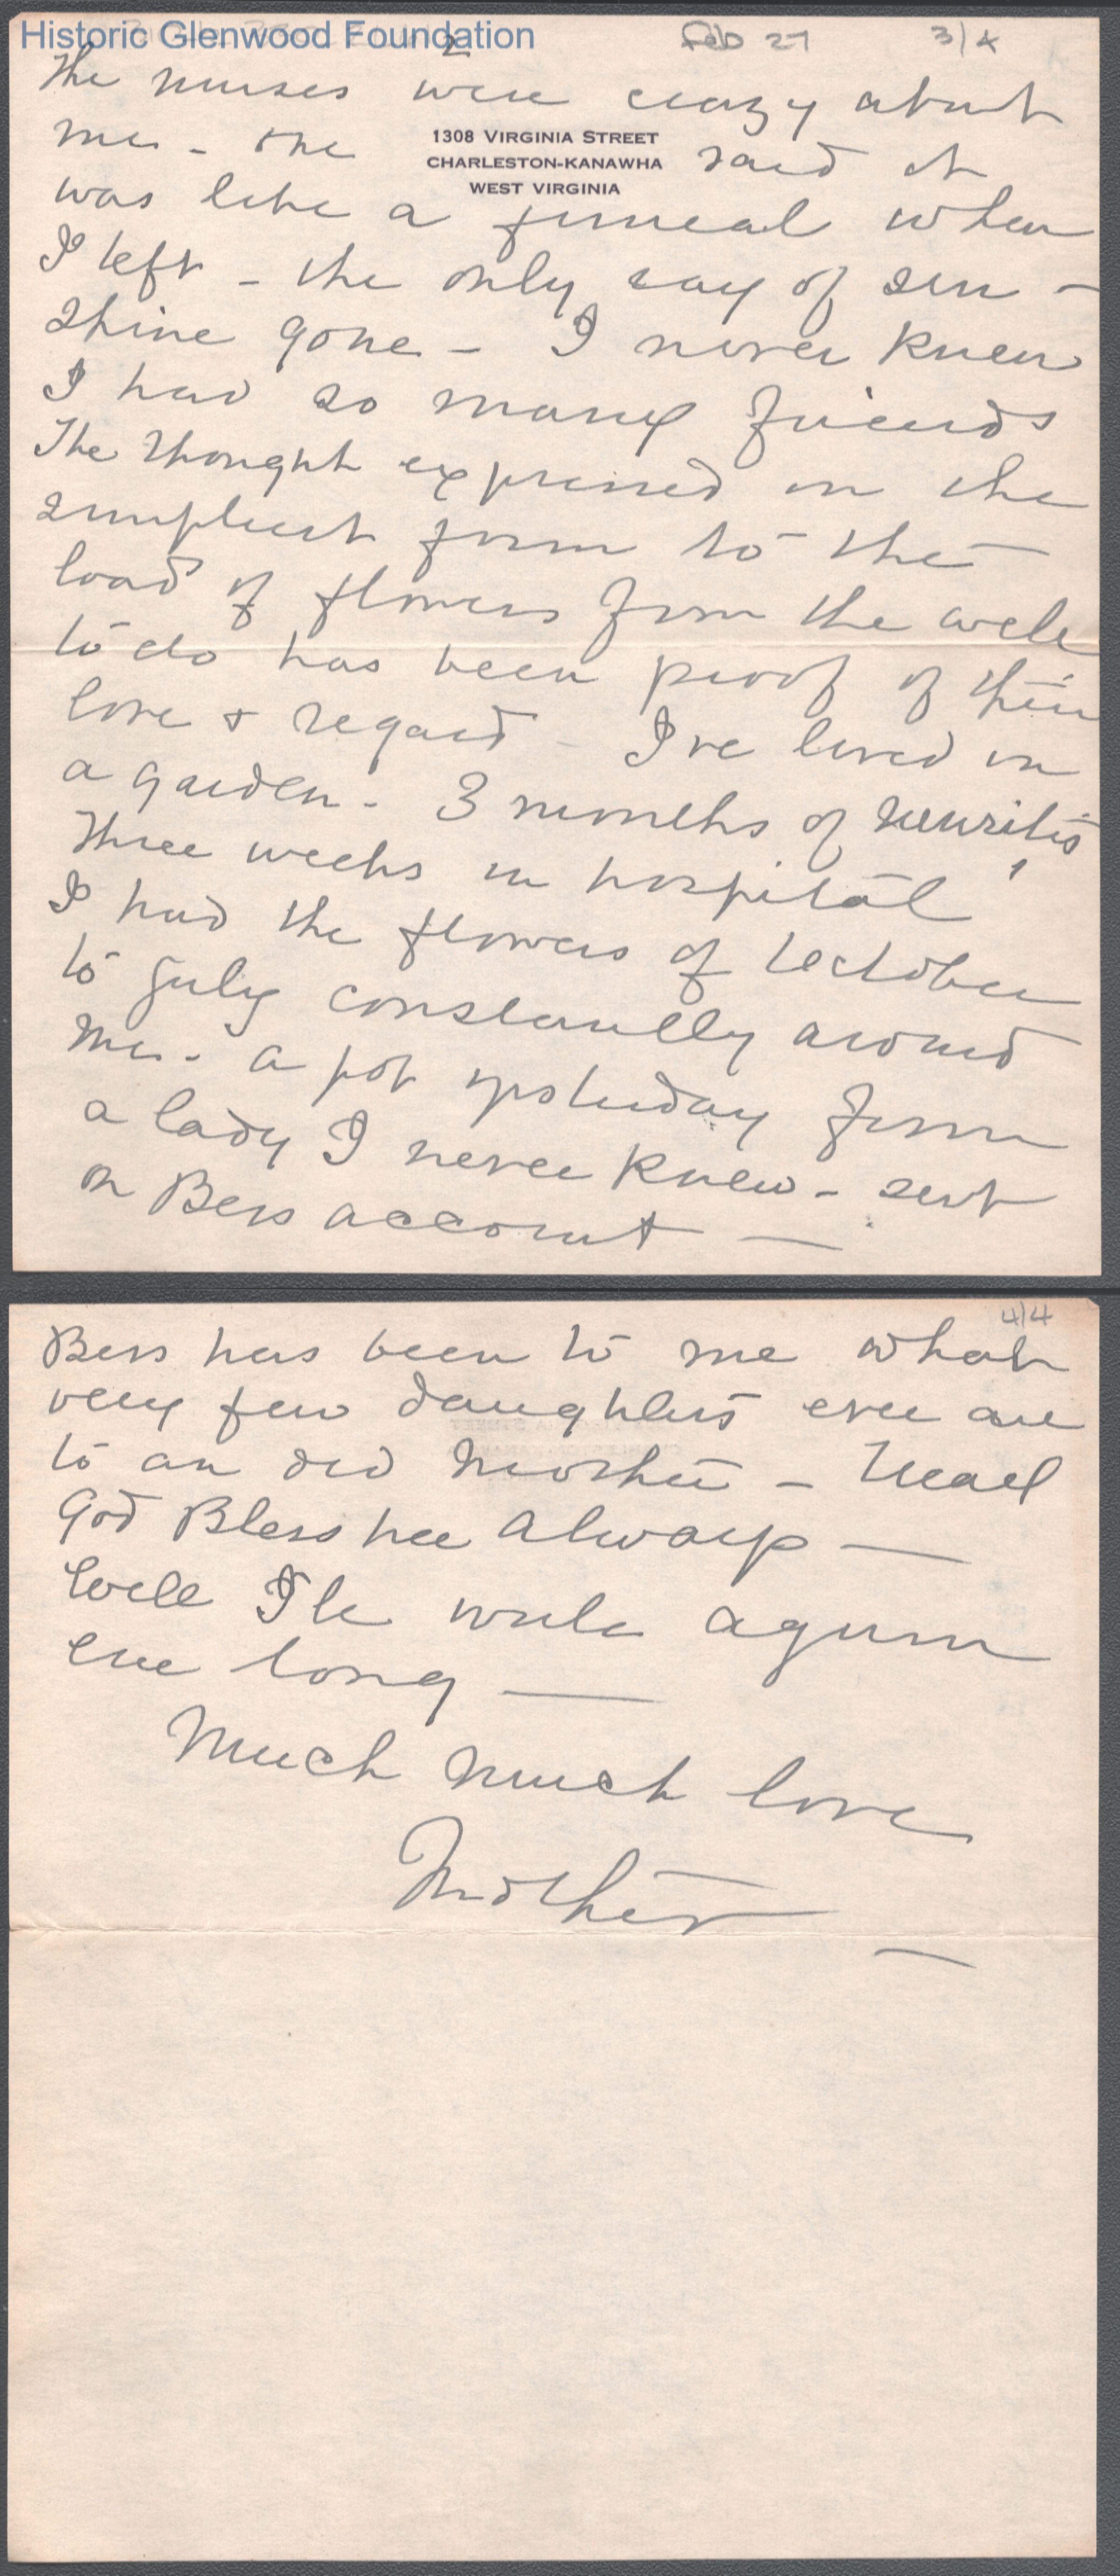 Historic Glenwood Foundation
Feb 27 3/4
2
The nurses were crazy about
me - one said it
1308 VIRGINIA STREET
CHARLESTON-KANAWHA
WEST VIRGINIA
was like a funeral when
I left - the only ray of sun -
shine gone - I never knew
I had so many friends
The thought expressed in the
simplest form to the
load of flowers from the well
to do has been proof of their
love & regard - I've lived in
a garden - 3 months of neuritis
Three weeks in hospital
I had the flowers of October
to July constantly around
me - a pot yesterday from
a lady I never knew - sent
on Bess account -
4/4
Bess has been to me what
very few daughters ever are
to an old mother -
God Bless her always -
Well I'le write again
ere long -
Much much love
Mother -